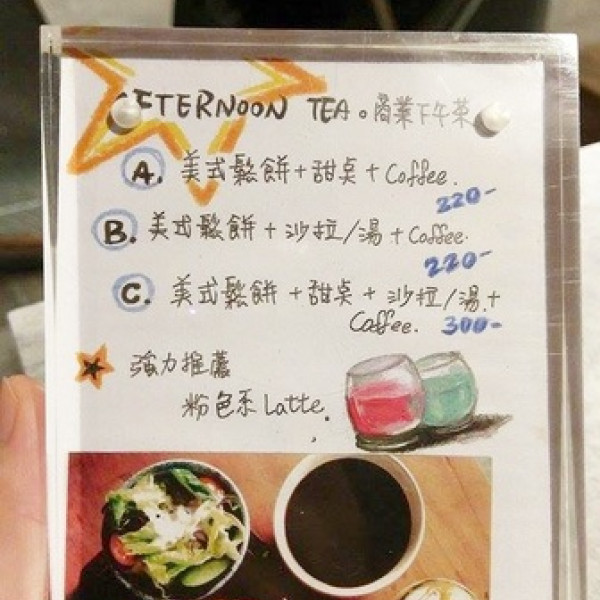 AFTERNOON TEA。商業下午茶
A. 美式鬆餅+甜桌+Coffee.
220-
B. 美式鬆餅+沙拉/湯+Coffee.
220-
C. 美式鬆餅+甜桌+沙拉/湯+
Coffee. 300-
強力推薦
粉色系Latte.